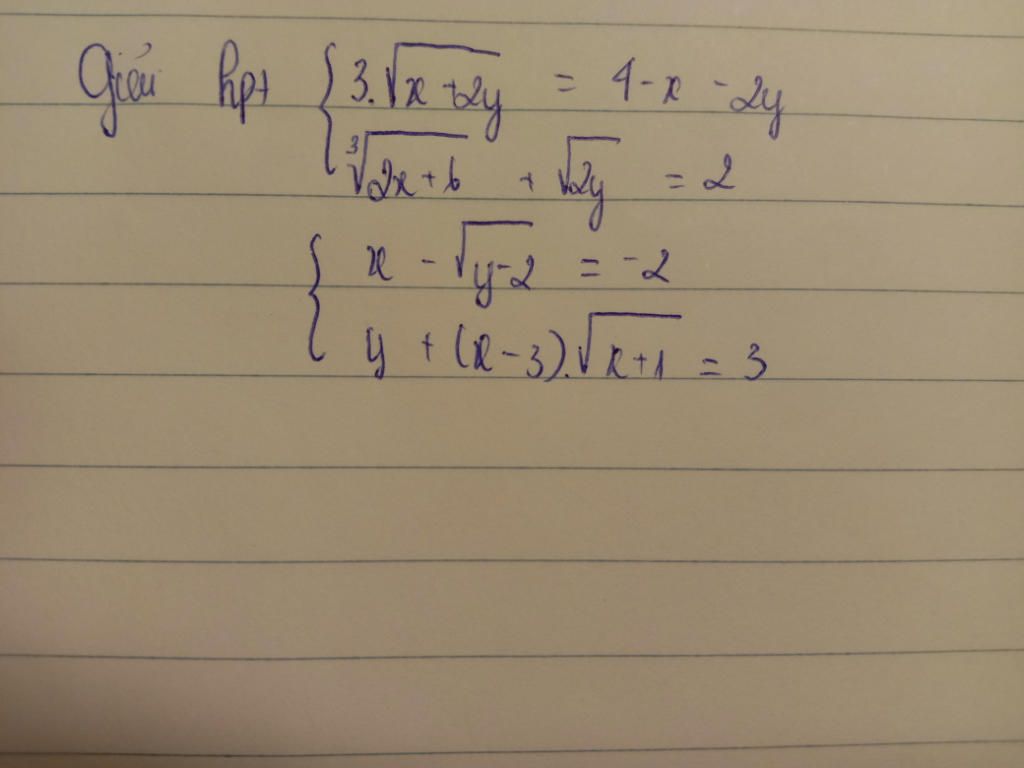 Giải hpt { 3.√(x+2y) = 4-x-2y
∛(2x+6) + √(2y) = 2
{ x - √(y-2) = -2
y + (x-3).√(x+1) = 3